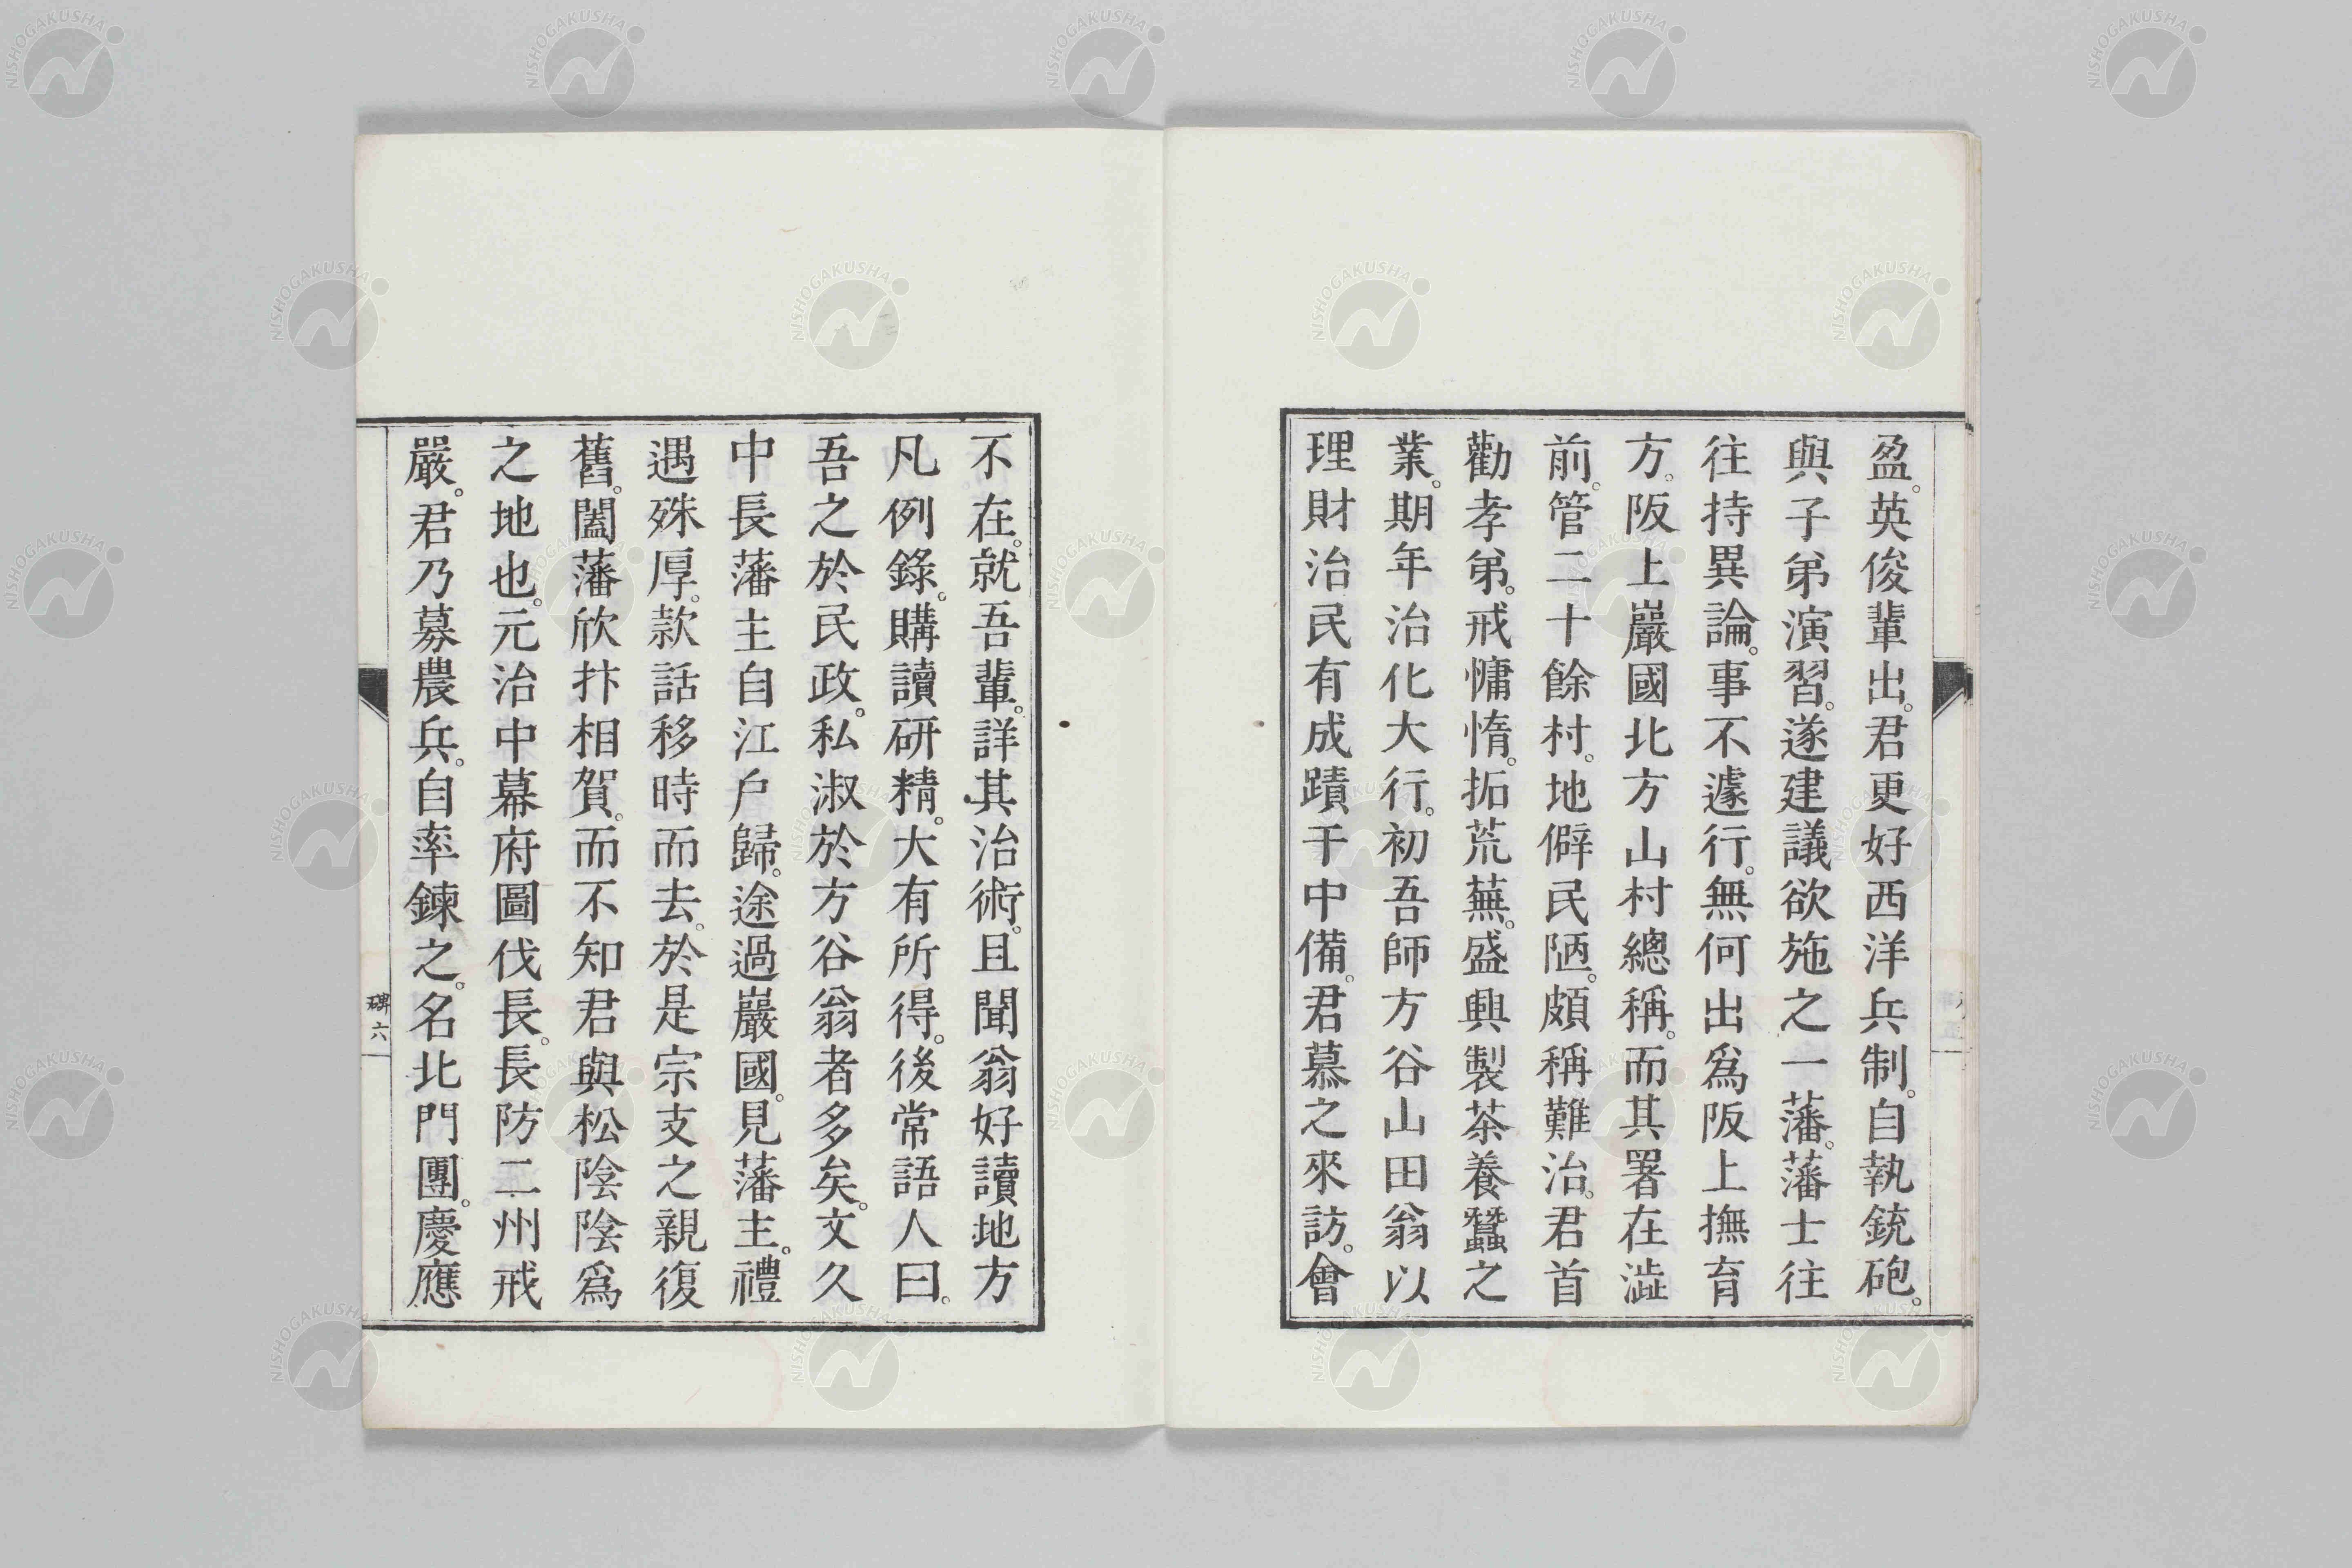 盈。英俊輩出。君更好西洋兵制。自執銃砲。
與子弟演習。遂建議欲施之一藩。藩士往
往持異論。事不遽行。無何出爲阪上撫育
方。阪上巖國北方山村總稱。而其署在澁
前。管二十餘村。地僻民陋。頗稱難治。君首
勸孝弟。戒慵惰。拓荒蕪。盛興製茶養蠶之
業。期年治化大行。初吾師方谷山田翁以
理財治民有成蹟于中備。君慕之來訪。會
不在。就吾輩。詳其治術。且聞翁好讀地方
凡例錄。購讀研精。大有所得。後常語人曰。
吾之於民政。私淑於方谷翁者多矣。文久
中長藩主自江戶歸。途過巖國。見藩主。禮
遇殊厚。款話移時而去。於是宗支之親復
舊。闔藩欣抃相賀。而不知君與松陰陰爲
之地也。元治中幕府圖伐長。長防二州戒
嚴。君乃募農兵。自率鍊之。名北門團。慶應
碑六
NISHOGAKUSHA